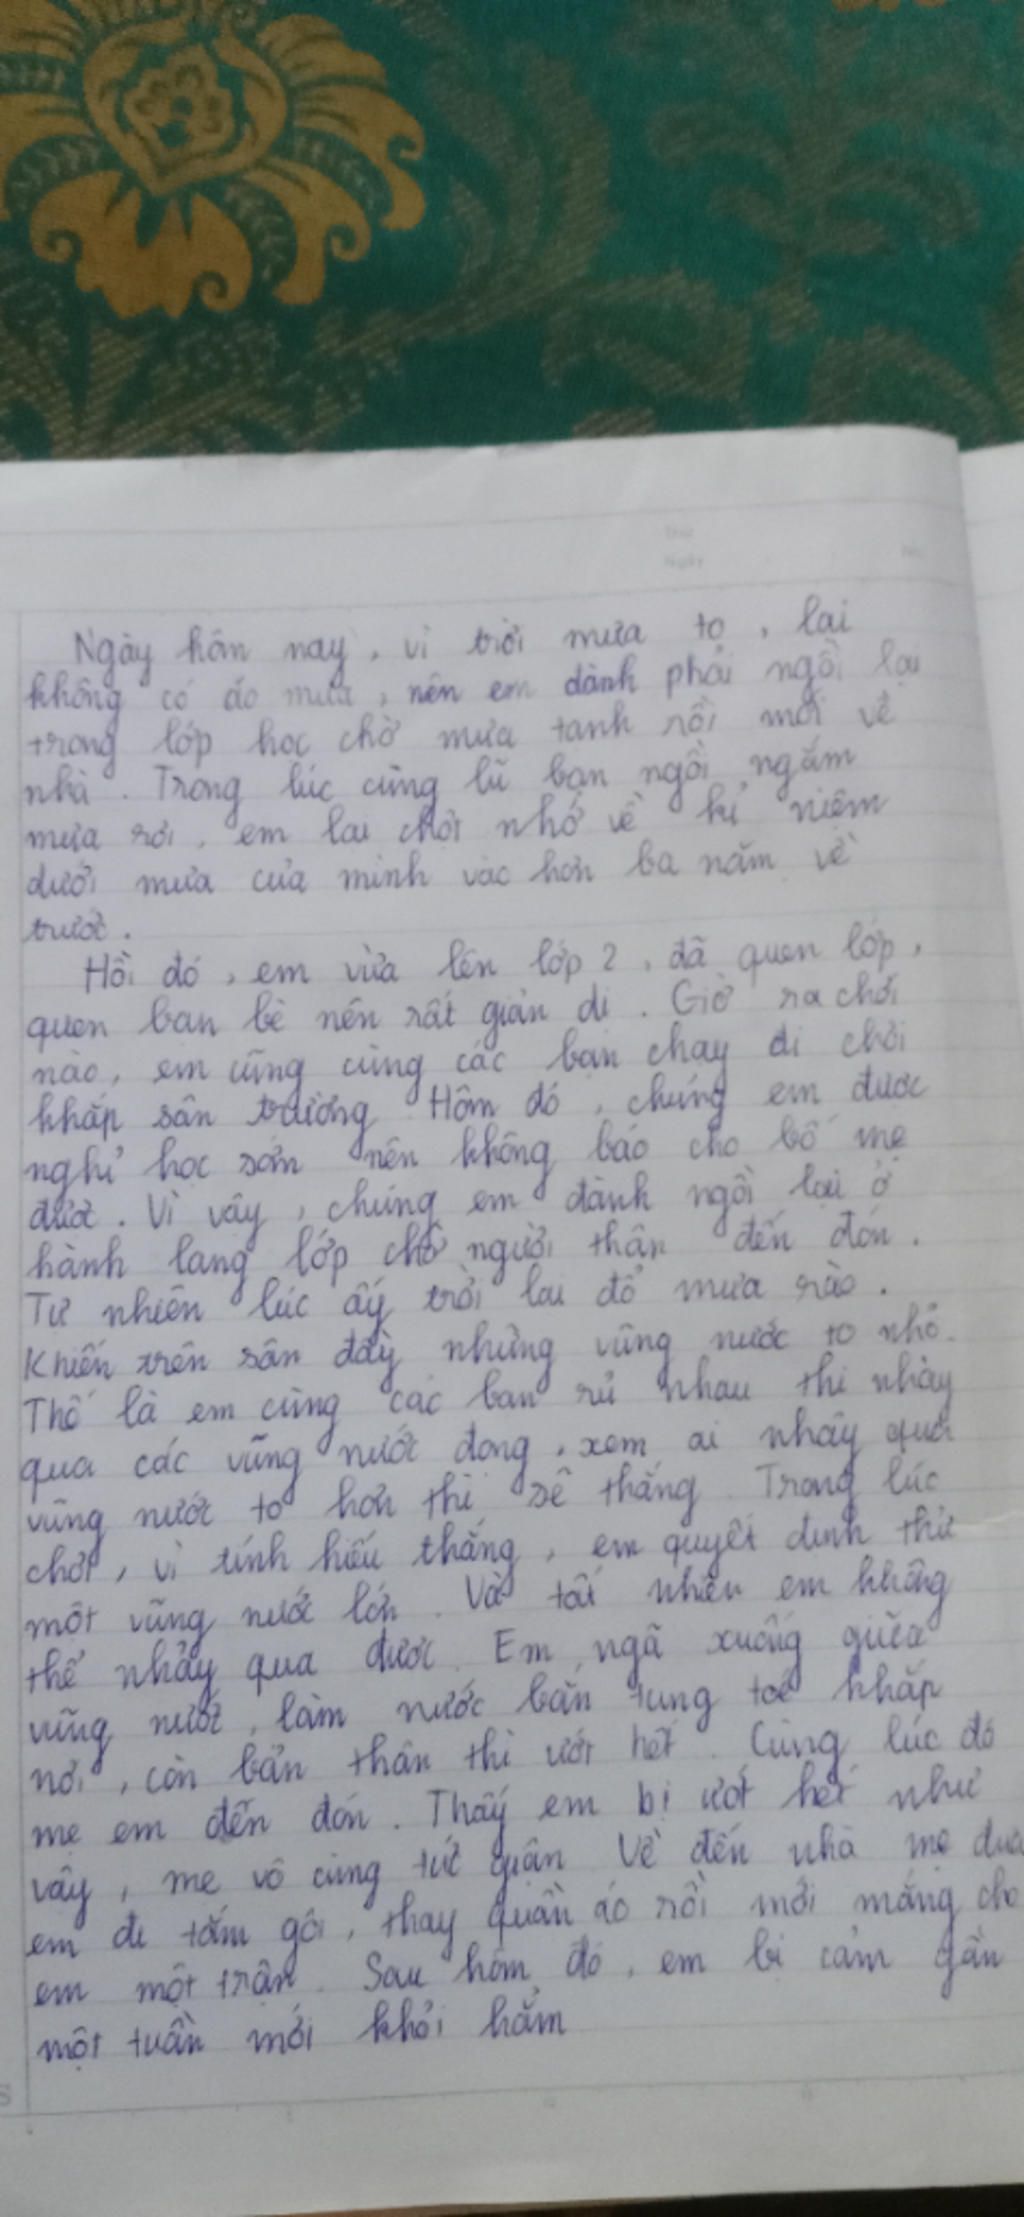 Thứ
Ngày
No.
Ngày hôm nay, vì trời mưa to, lại
không có áo mưa, nên em đành phải ngồi lại
trong lớp học chờ mưa tạnh rồi mới về
nhà. Trong lúc cùng lũ bạn ngồi ngắm
mưa rơi, em lại chợt nhớ về kỉ niệm
dưới mưa của mình vào hơn ba năm về
trước.
Hồi đó, em vừa lên lớp 2, đã quen lớp,
quen bạn bè nên rất giản dị. Giờ ra chơi
nào, em cũng cùng các bạn chạy đi chơi
khắp sân trường. Hôm đó, chúng em được
nghỉ học sớm nên không báo cho bố mẹ
được. Vì vậy, chúng em đành ngồi lại ở
hành lang lớp chờ người thân đến đón.
Tự nhiên lúc ấy trời lại đổ mưa rào.
Khiến trên sân đầy những vũng nước to nhỏ.
Thế là em cùng các bạn rủ nhau thi nhảy
qua các vũng nước đọng, xem ai nhảy qua
vũng nước to hơn thì sẽ thắng. Trong lúc
chơi, vì tính hiếu thắng, em quyết định thử
một vũng nước lớn. Và tất nhiên em không
thể nhảy qua được. Em ngã xuống giữa
vũng nước, làm nước bắn tung toé khắp
nơi, còn bản thân thì ướt hết. Cùng lúc đó
mẹ em đến đón. Thấy em bị ướt hết như
vậy, mẹ vô cùng tức giận. Về đến nhà mẹ đưa
em đi tắm gội, thay quần áo rồi mới mắng cho
em một trận. Sau hôm đó, em bị cảm gần
một tuần mới khỏi hẳn